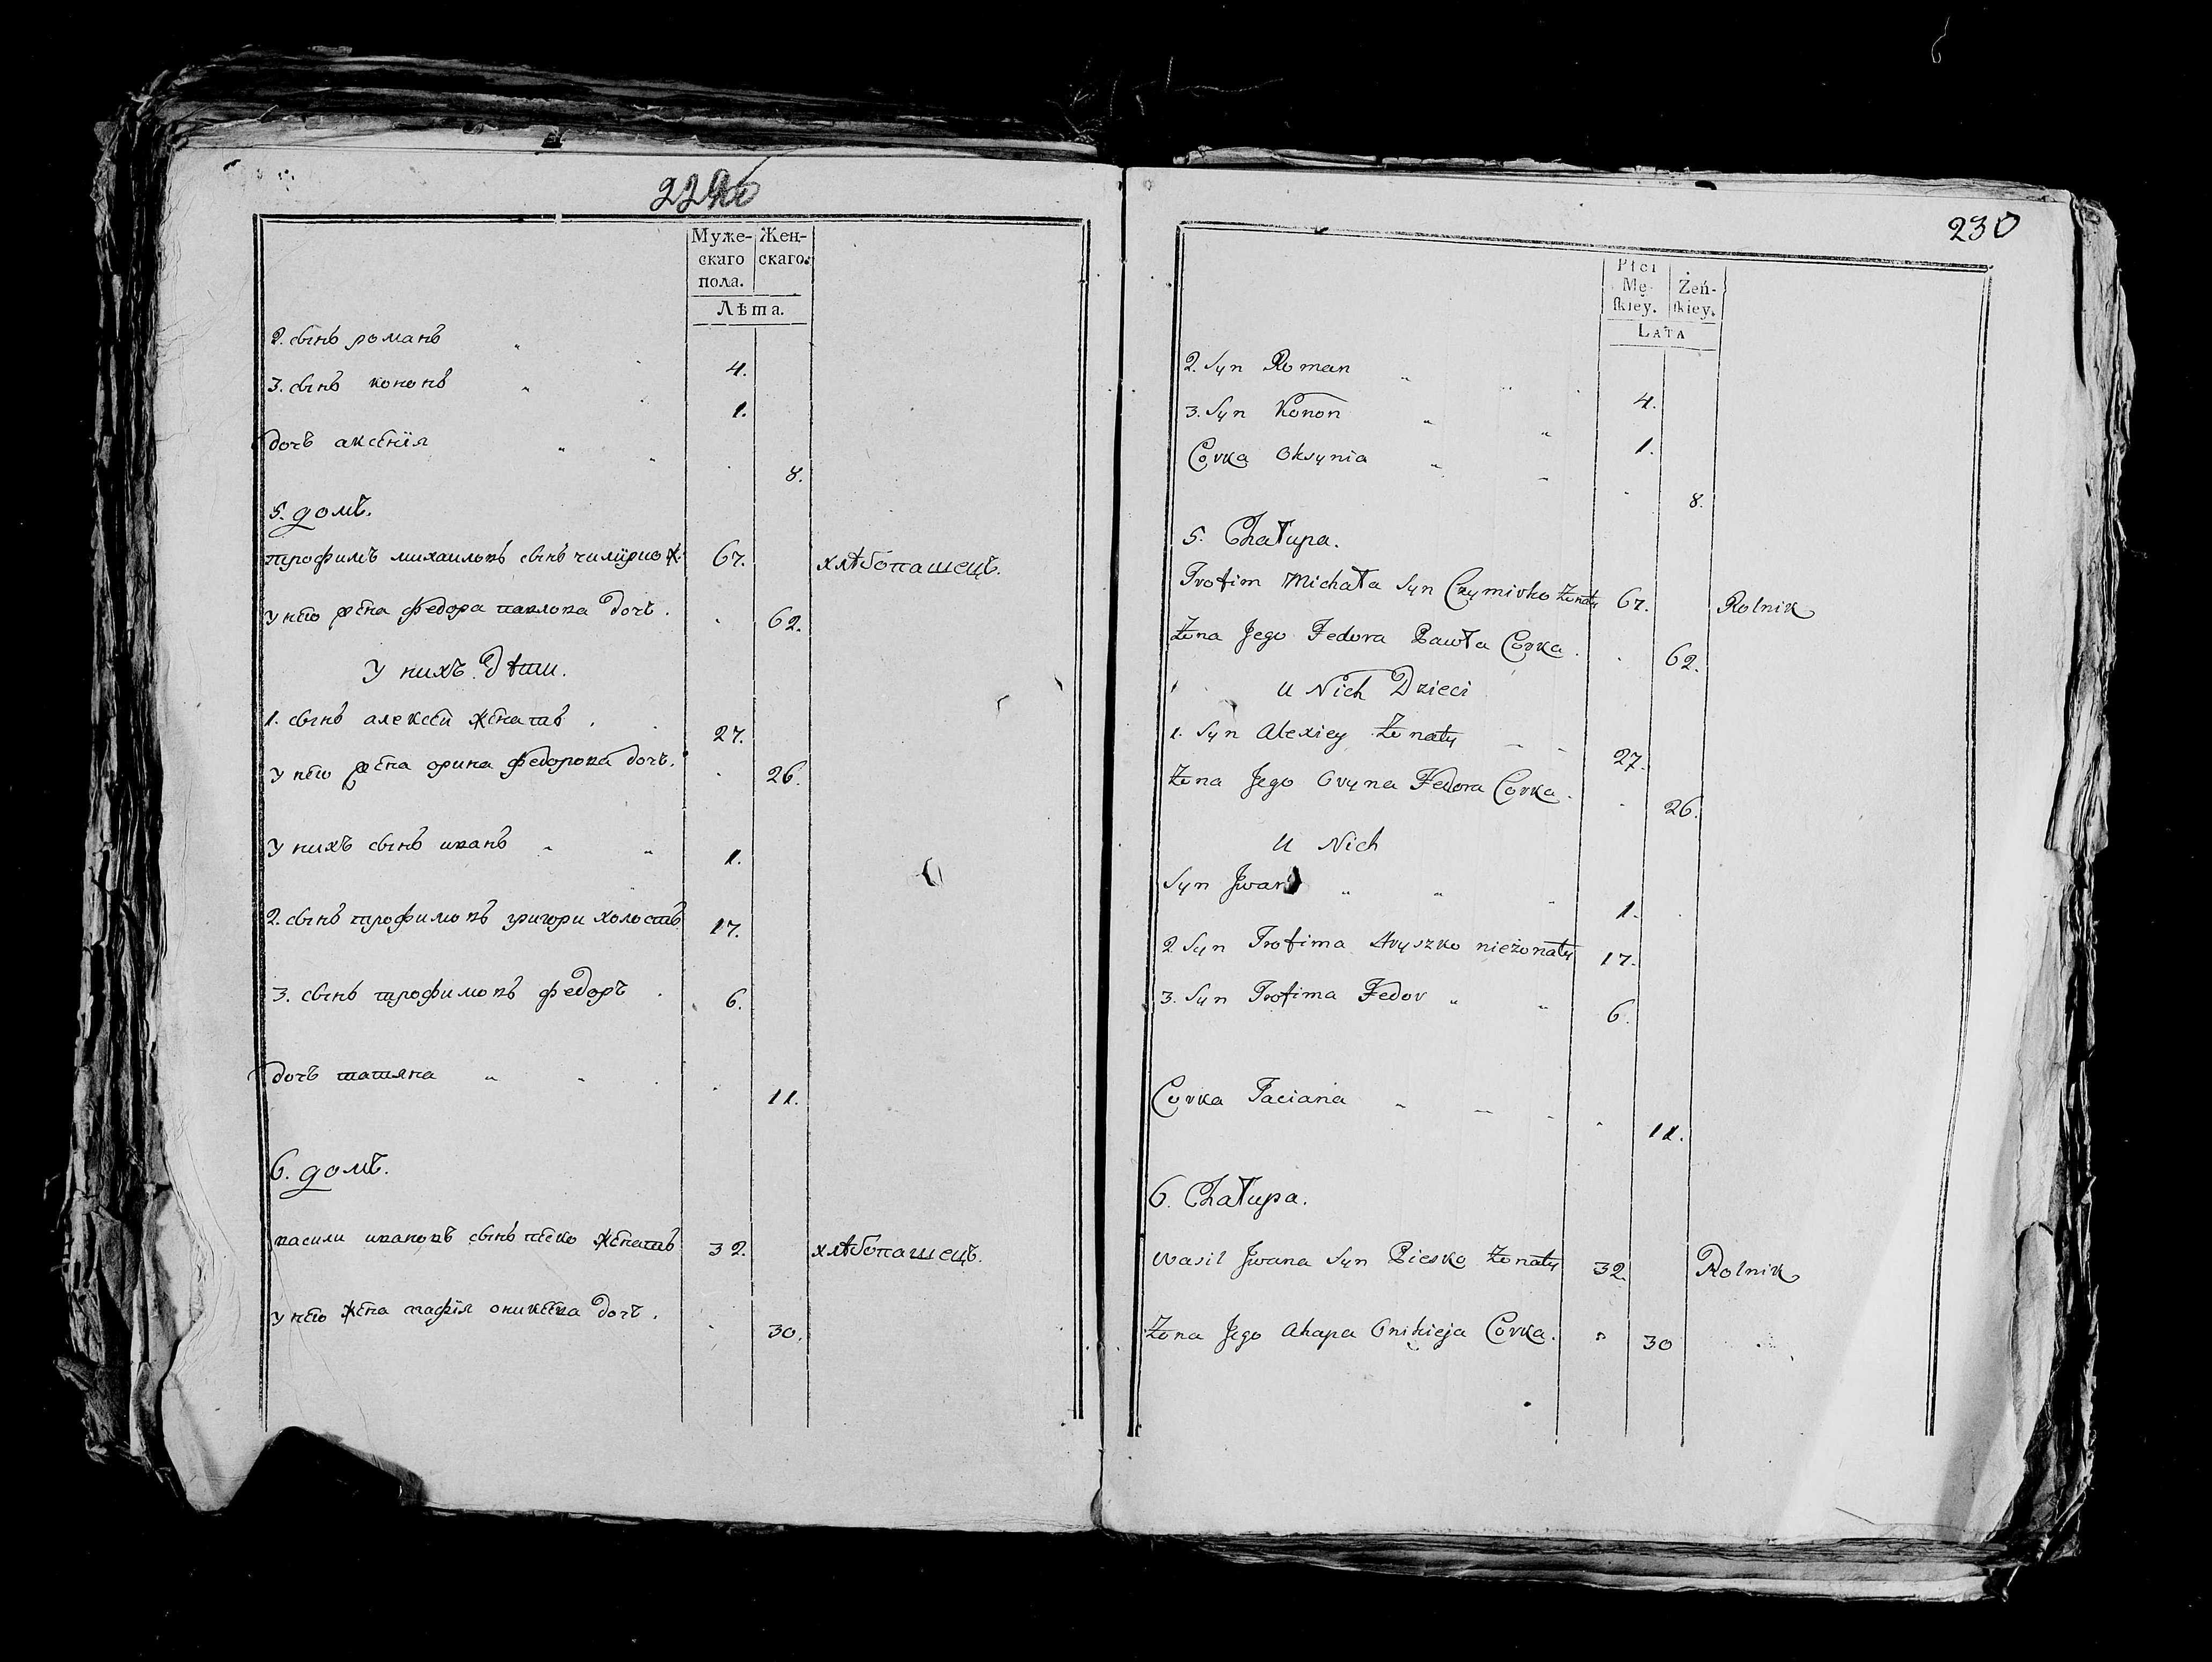 229об
Муже-
скаго
пола.
Жен-
скаго.
Лѣта.
2. сынъ романъ
4.
3. сынъ кононъ
1.
дочь аксенiя
8.
5. домъ.
трофимъ михаиловъ сынъ чимирко ж. 67. хлѣбопашецъ.
у него жена федора павлова дочь. 62.
У нихъ Дѣти.
1. сынъ алексей женатъ 27.
у него жена орина федорова дочь. 26.
У нихъ сынъ иванъ 1.
2. сынъ трофимовъ григори холостъ 17.
3. сынъ трофимовъ федоръ 6.
дочь татяна 11.
6. домъ.
васили ивановъ сынъ песко женатъ 32. хлѣбопашецъ.
у него жена агафiя оникеева дочь. 30.
230
Płci
Mę-
skiey.
Żeń-
skiey.
LATA
2. Syn Roman 4.
3. Syn Konon 1.
Corka Oksynia 8.
5. Chałupa.
Trofim Michała Syn Czymirko Żonaty 67. Rolnik
Żona Jego Fedora Pawła Corka. 62.
U Nich Dzieci
1. Syn Alexiey Żonaty 27.
Żona Jego Oryna Fedora Corka. 26.
U Nich
Syn Jwan 1.
2 Syn Trofima Hryszko nieżonaty 17.
3. Syn Trofima Fedor 6.
Corka Taciana 11.
6. Chałupa.
Wasil Jwana Syn Piesko Żonaty 32. Rolnik
Żona Jego Ahapa Onikieja Corka. 30